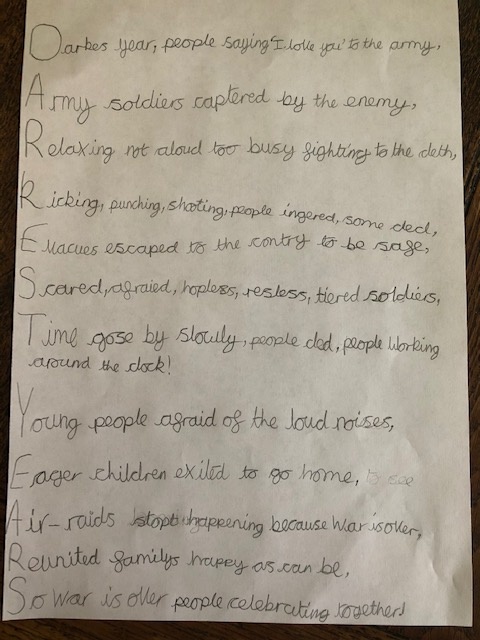 Darkes year, people saying "I love you" to the army,
Army soldiers captered by the enemy,
Relaxing not aloud too busy fighting to the deth,
Kicking, punching, shooting, people ingered, some ded,
Evacues escaped to the contry to be safe,
Scared, afraied, hopless, resless, tiered soldiers,
Time gose by slowly, people ded, people working
around the clock!
Young people afraid of the loud noises,
Eager children exited to go home, to see
Air-raids stopt happening because war is over,
Reunited familys happy as can be,
So war is over people celebrating together!